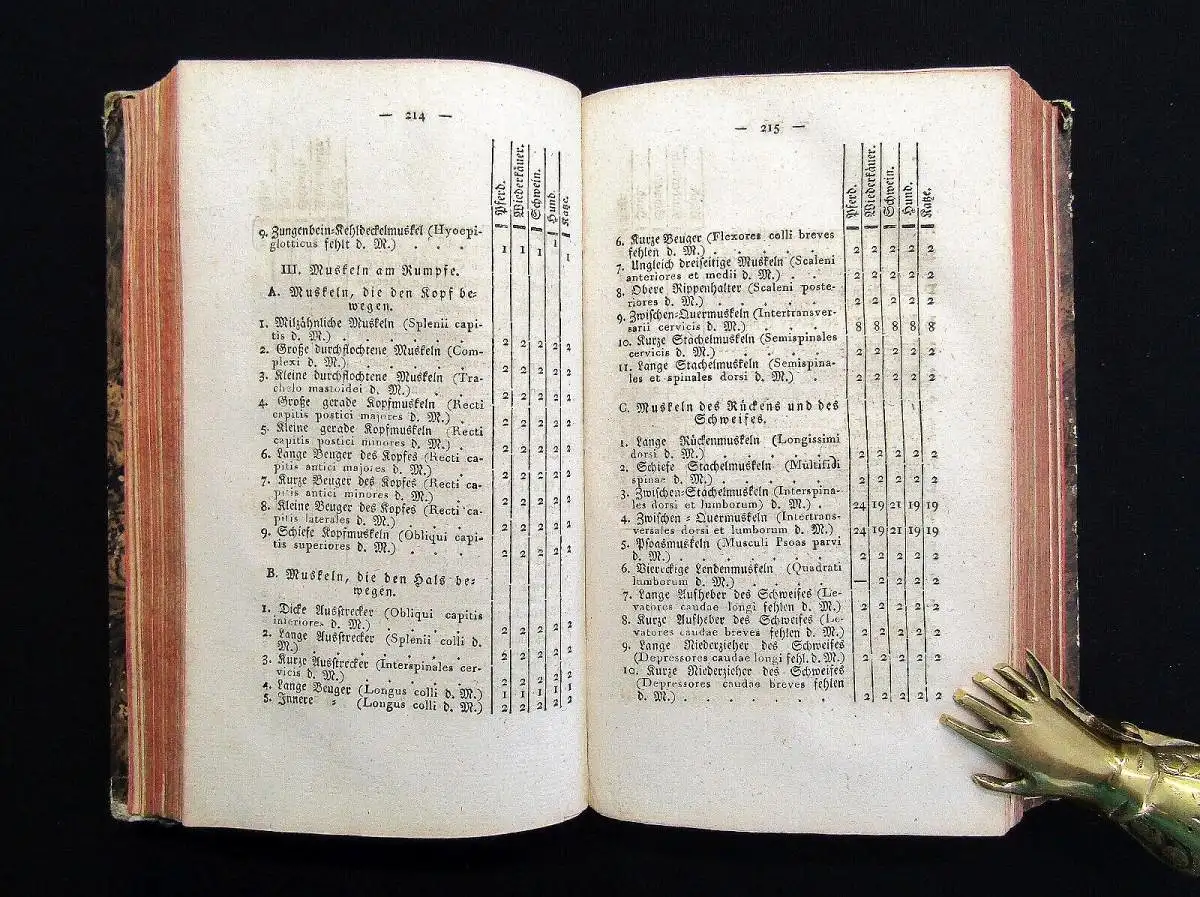 — 214 —
Pferd. Wiederkäuer. Schwein. Hund. Katze.
9. Zungenbein-Kehldeckelmuskel (Hyoepi-
glotticus fehlt d. M.) . . . 1 1 1 1 1
III. Muskeln am Rumpfe.
A. Muskeln, die den Kopf be-
wegen.
1. Milzähnliche Muskeln (Splenii capi-
tis d. M.) . . . . . . 2 2 2 2 2
2. Große durchflochtene Muskeln (Com-
plexi d. M.) . . . . . 2 2 2 2 2
3. Kleine durchflochtene Muskeln (Tra-
chelo mastoidei d. M.) . . . 2 2 2 2 2
4. Große gerade Kopfmuskeln (Recti
capitis postici majores d. M.) . 2 2 2 2 2
5. Kleine gerade Kopfmuskeln (Recti
capitis postici minores d. M.) . 2 2 2 2 2
6. Lange Beuger des Kopfes (Recti ca-
pitis antici majores d. M.) . 2 2 2 2 2
7. Kurze Beuger des Kopfes (Recti ca-
pitis antici minores d. M.) . 2 2 2 2 2
8. Kleine Beuger des Kopfes (Recti ca-
pitis laterales d. M.) . . . 2 2 2 2 2
9. Schiefe Kopfmuskeln (Obliqui capi-
tis superiores d. M.) . . . 2 2 2 2 2
B. Muskeln, die den Hals be-
wegen.
1. Dicke Ausstrecker (Obliqui capitis
inferiores d. M.) . . . . 2 2 2 2 2
2. Lange Ausstrecker (Splenii colli d.
M.) . . . . . . . 2 2 2 2 2
3. Kurze Ausstrecker (Interspinales cer-
vicis d. M.) . . . . . 2 2 2 2 2
4. Lange Beuger (Longus colli d. M.) 1 1 1 1 1
5. Innere „ (Longus colli d. M.) 2 2 2 2 2
— 215 —
Pferd. Wiederkäuer. Schwein. Hund. Katze.
6. Kurze Beuger (Flexores colli breves
fehlen d. M.) . . . . . 2 2 2 2 2
7. Ungleich dreiseitige Muskeln (Scaleni
anteriores et medii d. M.) . . 2 2 2 2 2
8. Obere Rippenhalter (Scaleni poste-
riores d. M.) . . . . . 2 2 2 2 2
9. Zwischen-Quermuskeln (Intertransver-
sarii cervicis d. M.) . . . 8 8 8 8 8
10. Kurze Stachelmuskeln (Semispinales
cervicis d. M.) . . . . 2 2 2 2 2
11. Lange Stachelmuskeln (Semispina-
les et spinales dorsi d. M.) . 2 2 2 2 2
C. Muskeln des Rückens und des
Schweifes.
1. Lange Rückenmuskeln (Longissimi
dorsi d. M.) . . . . . 2 2 2 2 2
2. Schiefe Stachelmuskeln (Multifidi
spinae d. M.) . . . . . 2 2 2 2 2
3. Zwischen-Stachelmuskeln (Interspina-
les dorsi et lumborum) d. M.) . 24 19 21 19 19
4. Zwischen-Quermuskeln (Intertrans-
versales dorsi et lumborum d. M.) 24 19 21 19 19
5. Psoasmuskeln (Musculi Psoas parvi
d. M.) . . . . . . 2 2 2 2 2
6. Viereckige Lendenmuskeln (Quadrati
lumborum d. M.) . . . . — 2 2 2 2
7. Lange Aufheber des Schweifes (Le-
vatores caudae longi fehlen d. M.) 2 2 2 2 2
8. Kurze Aufheber des Schweifes (Le-
vatores caudae breves fehlen d. M.) 2 2 2 2 2
9. Lange Niederzieher des Schweifes
(Depressores caudae longi fehl. d. M.) 2 2 2 2 2
10. Kurze Niederzieher des Schweifes
(Depressores caudae breves fehlen
d. M.) . . . . . . . 2 2 2 2 2